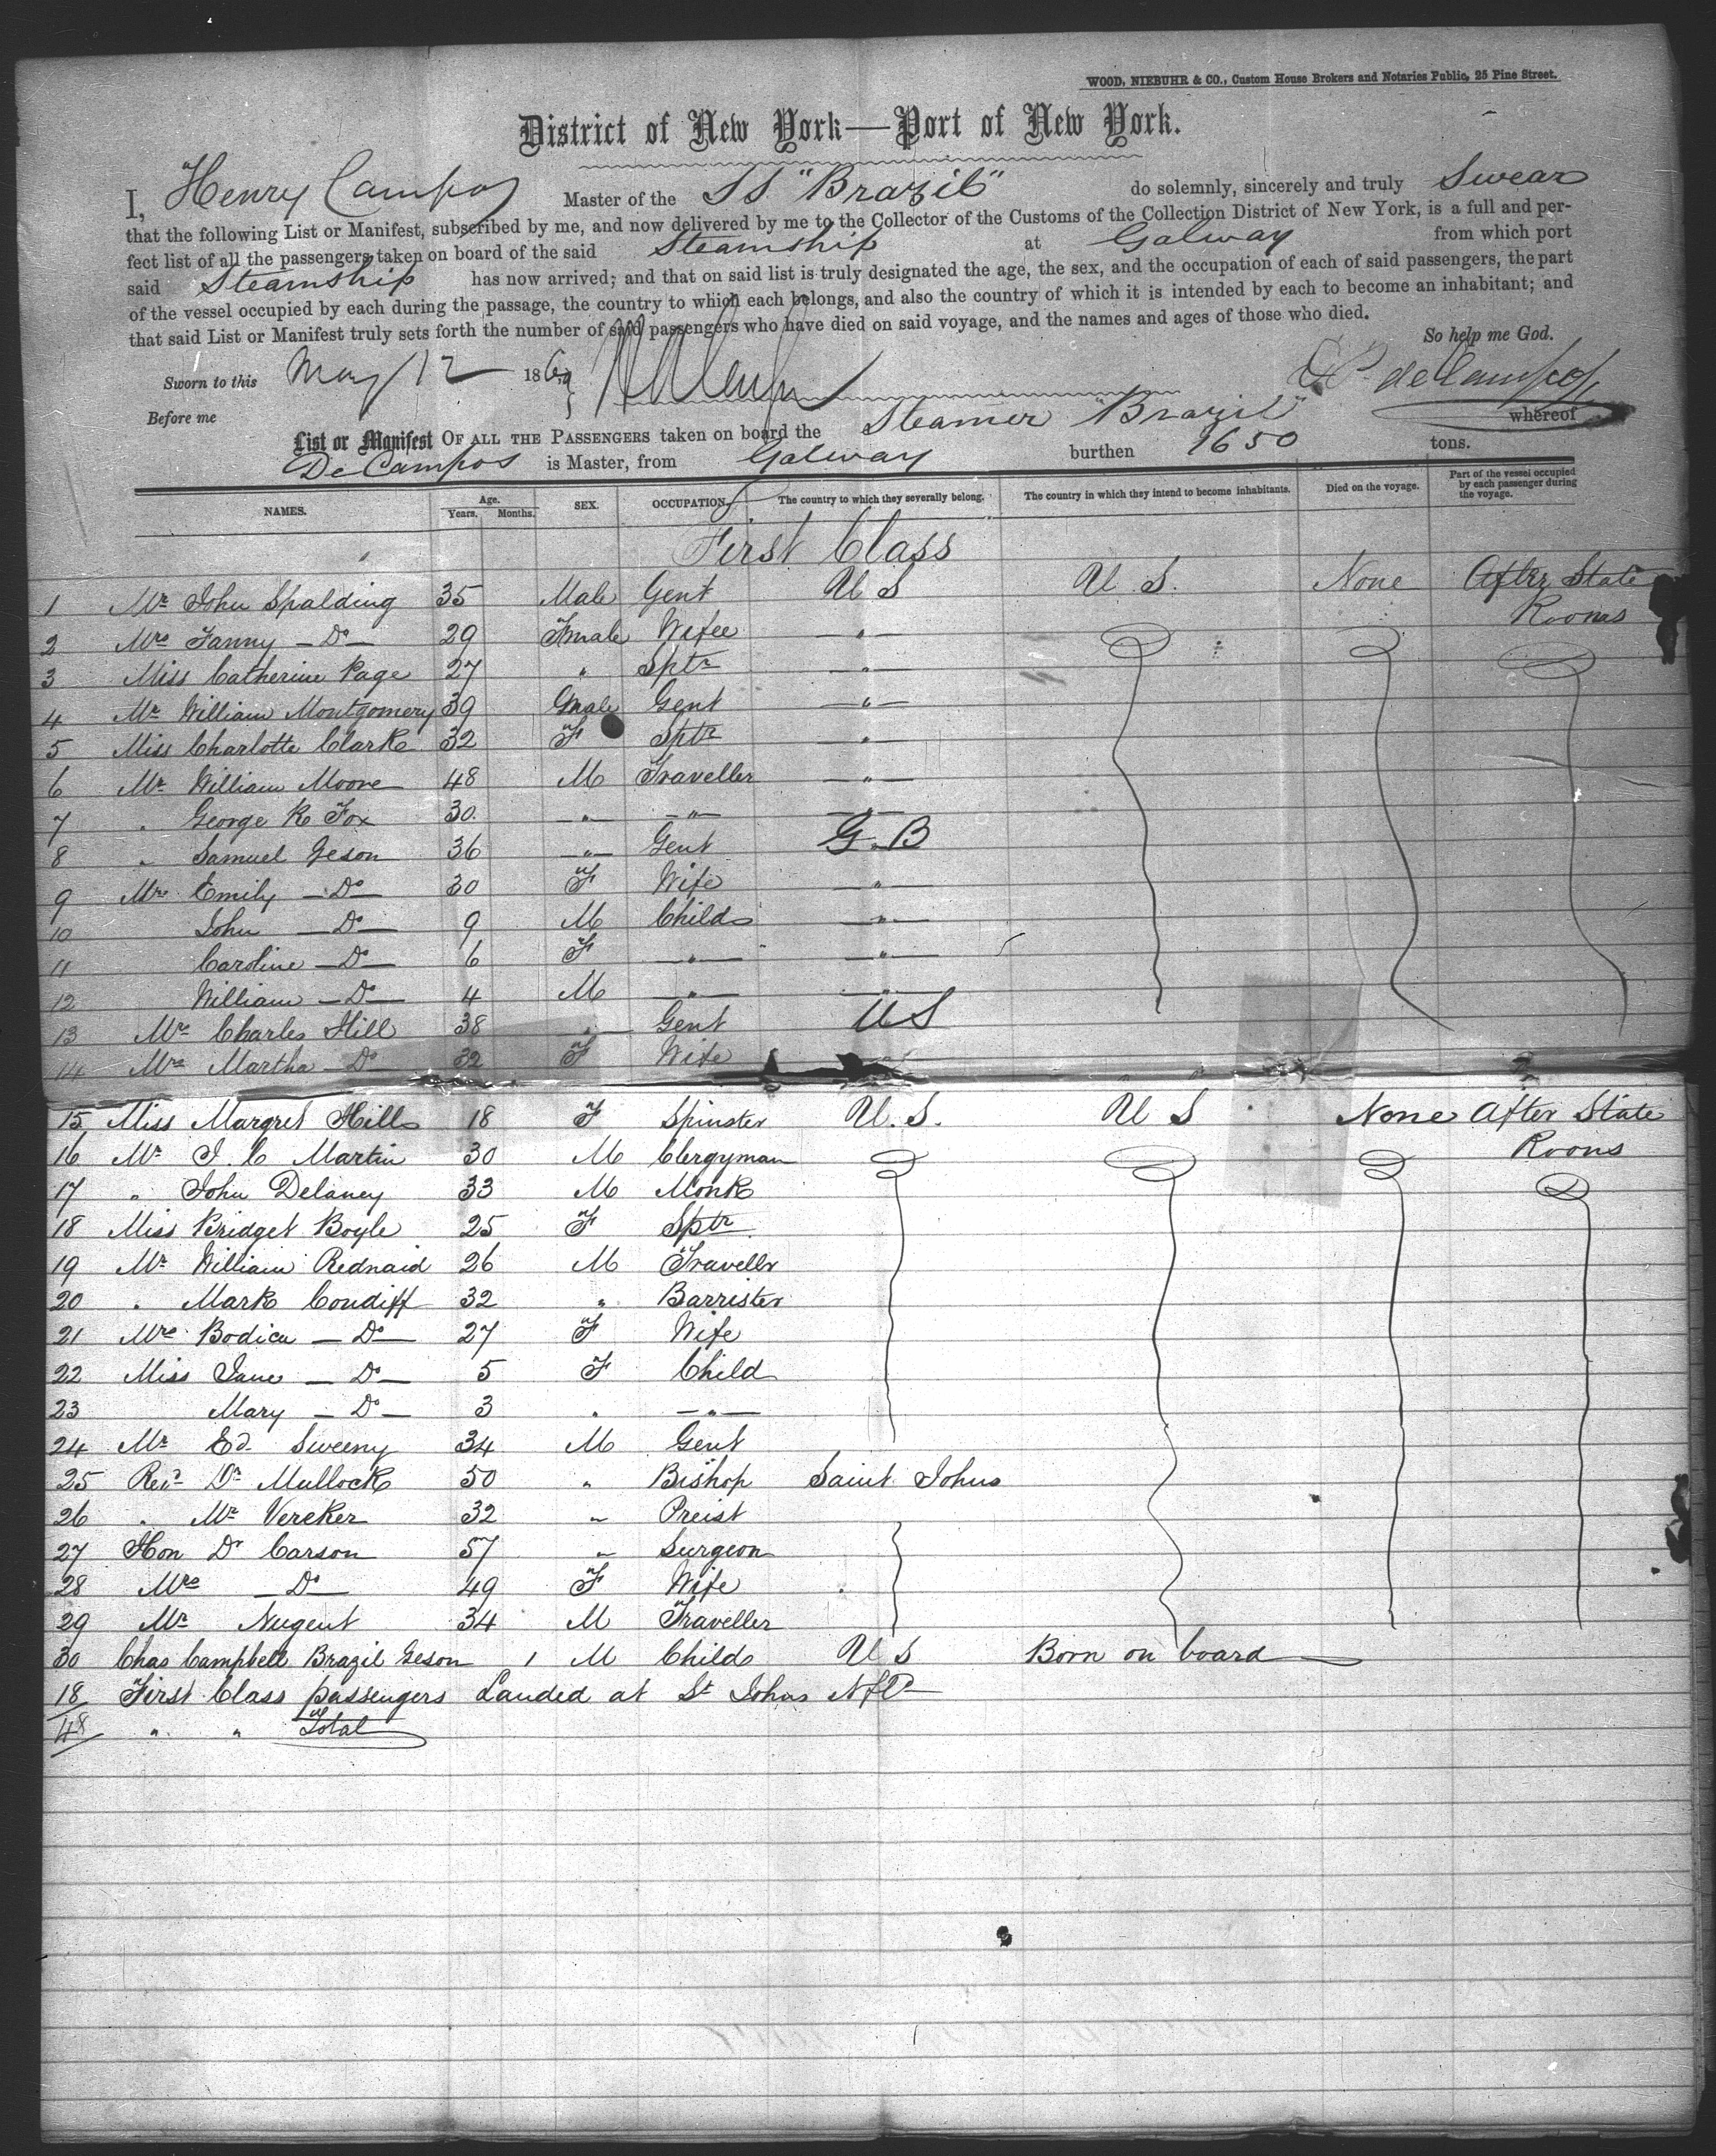 WOOD, NIEBUHR & CO., Custom House Brokers and Notaries Public, 25 Pine Street.
District of New York—Port of New York.
I, Henry Campos Master of the SS "Brazil" do solemnly, sincerely and truly Swear
that the following List or Manifest, subscribed by me, and now delivered by me to the Collector of the Customs of the Collection District of New York, is a full and per-
fect list of all the passengers taken on board of the said Steamship at Galway from which port
said Steamship has now arrived; and that on said list is truly designated the age, the sex, and the occupation of each of said passengers, the part
of the vessel occupied by each during the passage, the country to which each belongs, and also the country of which it is intended by each to become an inhabitant; and
that said List or Manifest truly sets forth the number of said passengers who have died on said voyage, and the names and ages of those who died.
So help me God.
Sworn to this May 12 186
de Campos
Before me
List or Manifest OF ALL THE PASSENGERS taken on board the Steamer "Brazil" whereof
De Campos is Master, from Galway burthen 1650 tons.
NAMES. Age. Years. Months. SEX. OCCUPATION. The country to which they severally belong. The country in which they intend to become inhabitants. Died on the voyage. Part of the vessel occupied by each passenger during the voyage.
First Class
1 Mr John Spalding 35 Male Gent U S U. S. None After State Rooms
2 Mrs Fanny — Do — 29 Fmale Wifee — " —
3 Miss Catherine Page 27 " Sptr — " —
4 Mr William Montgomery 39 Male Gent — " —
5 Miss Charlotte Clark 32 F Sptr — " —
6 Mr William Moore 48 M Traveller — " —
7 " George R Fox 30 — " — — " — — " —
8 " Samuel Geson 36 — " — Gent G. B
9 Mrs Emily — Do — 30 F Wife — " —
10 John — Do — 9 M Child — " —
11 Caroline — Do — 6 F — " — — " —
12 William — Do — 4 M — " — — " —
13 Mr Charles Hill 38 " Gent U S
14 Mrs Martha Do 32 F Wife
15 Miss Margret Hill 18 F Spinster U. S. U S None After State Rooms
16 Mr J. C Martin 30 M Clergyman
17 " John Delaney 33 M Monk
18 Miss Bridget Boyle 25 F Sptr
19 Mr William Rednaid 26 M Travellr
20 " Mark Condiff 32 " Barrister
21 Mrs Bodica — Do — 27 F Wife
22 Miss Jane — Do — 5 F Child
23 Mary — Do — 3 " — " —
24 Mr Ed. Sweeny 34 M Gent
25 Revd Dr Mullock 50 " Bishop Saint Johns
26 " Mr Vereker 32 " Preist
27 Hon Dr Carson 57 " Surgeon
28 Mrs — Do — 49 F Wife
29 Mr Nugent 34 M Traveller
30 Chas Campbell Brazil Geson 1 M Child U S Born on board
18 First Class passengers Landed at St Johns Nfld
48 " " Total